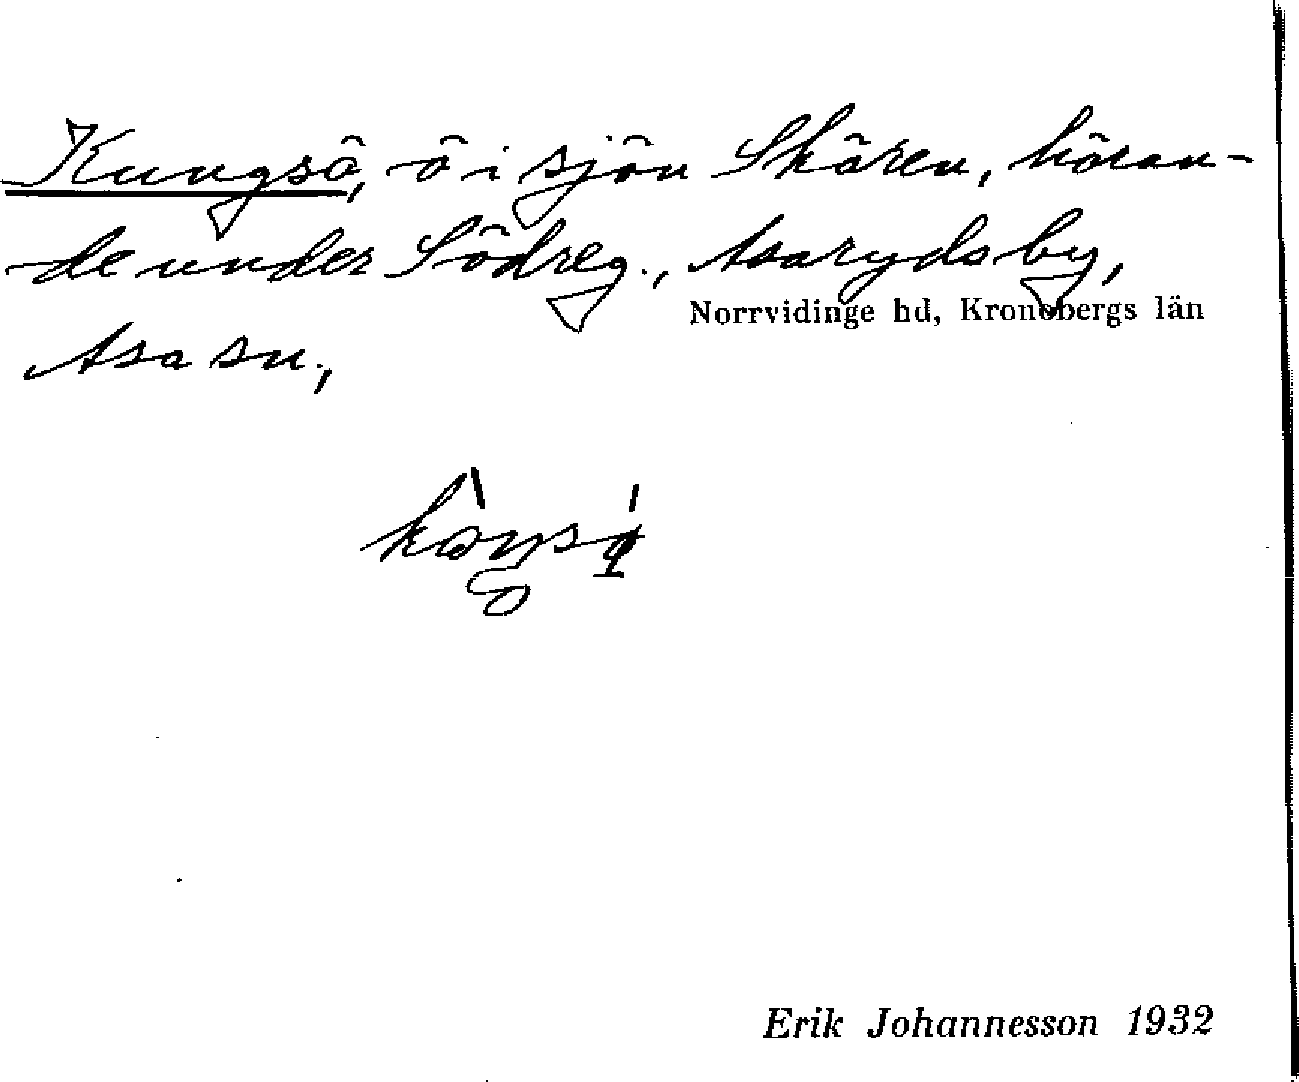 Kungsö, ö i sjön Skären, höran-
de under Södreg., Asarydsby,
Norrvidinge hd, Kronobergs län
Asa sn,
Erik Johannesson 1932